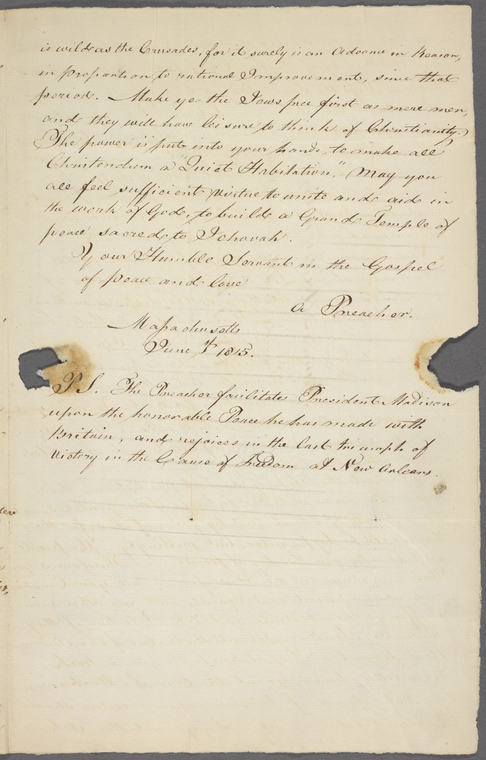 is wild as the Crusades, for it surely is an Advance in Reason,
in proportion to rational Improvement, since that
period. Make ye the Jews free first as mere men,
and they will have leisure to think of Christianity.
The power is put into your hands to make all
Christendom a "Quiet Habitation," May you
all feel sufficient virtue to unite and aid in
the work of God, to build a Grand Temple of
peace sacred to Jehovah.
Your Humble Servant in the Gospel
of peace and love
A Preacher.
Massachusetts
June 1815.
P.S. The Preacher facilitates President Madison
upon the honorable Peace he has made with
Britain, and rejoices in the last triumph of
Victory in the Cause of Freedom at New Orleans.